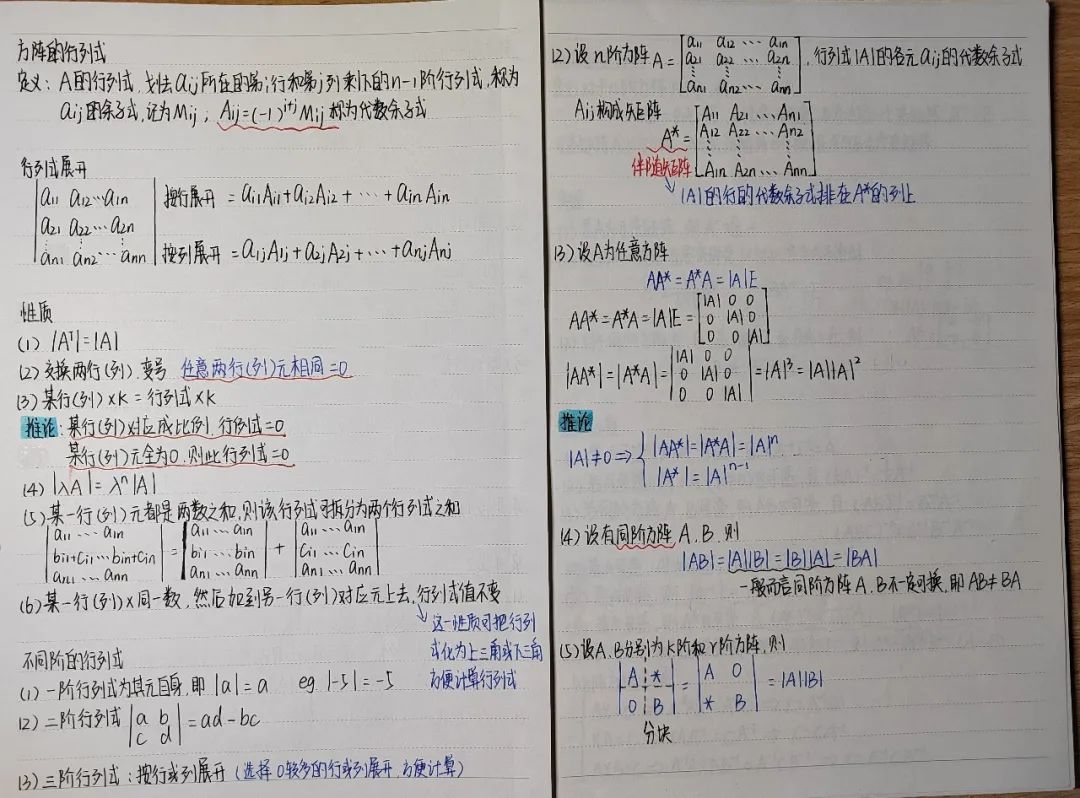 方阵的行列式
定义：A的行列式,划去aij所在的第i行和第j列剩下的n-1阶行列式,称为
aij的余子式,记为Mij；Aij=(-1)^{i+j}Mij称为代数余子式
行列式展开
|a11 a12…a1n|
|a21 a22…a2n|
|⋮ ⋮ ⋮|
|an1 an2…ann|
按行展开 = ai1Ai1+ai2Ai2+…+ainAin
按列展开 = a1jA1j+a2jA2j+…+anjAnj
性质
(1) |A^T|=|A|
(2) 交换两行(列).变号 任意两行(列)元相同=0
(3) 某行(列)×K=行列式×K
推论:某行(列)对应成比例.行列式=0
某行(列)元全为0.则此行列式=0
(4) |λA|=λ^n|A|
(5) 某一行(列)元都是两数之和,则该行列式可拆分为两个行列式之和
|a11…a1n| |a11…a1n| |a11…a1n|
|bi1+Ci1…bin+Cin| = |bi1…bin| + |Ci1…Cin|
|an1…ann| |an1…ann| |an1…ann|
(6) 某一行(列)×同一数，然后加到另一行(列)对应元上去,行列式值不变
这一性质可把行列
式化为上三角或下三角
方便计算行列式
不同阶的行列式
(1) 一阶行列式为其元自身,即 |a|=a eg |-5|=-5
(2) 二阶行列式 |a b; c d| = ad-bc
(3) 三阶行列式：按行或列展开 (选择0较多的行或列展开.方便计算)
(2) 设n阶方阵A= [a11 a12 … a1n; a21 a22 … a2n; ⋮ ⋮ ⋮; an1 an2 … ann] . 行列式|A|的各元aij的代数余子式
Aij构成矩阵
A*= [A11 A21 … An1; A12 A22 … An2; ⋮ ⋮ ⋮; A1n A2n … Ann]
伴随矩阵
|A|的行的代数余子式排在A*的列上
(3) 设A为任意方阵
AA*=A*A=|A|E
AA*=A*A=|A|E= [|A| 0 0; 0 |A| 0; 0 0 |A|]
|AA*|=|A*A|= ||A| 0 0; 0 |A| 0; 0 0 |A|| =|A|^3=|A||A|^2
推论
|A|≠0 ⇒ { |AA*|=|A*A|=|A|^n
|A*|=|A|^{n-1}
(4) 设有同阶方阵A.B.则
|AB|=|A||B|=|B||A|=|BA|
一般而言同阶方阵A.B不一定可换,即AB≠BA
(5) 设A.B分别为k阶和r阶方阵,则
|A *; 0 B| = |A 0; * B| = |A||B|
分块